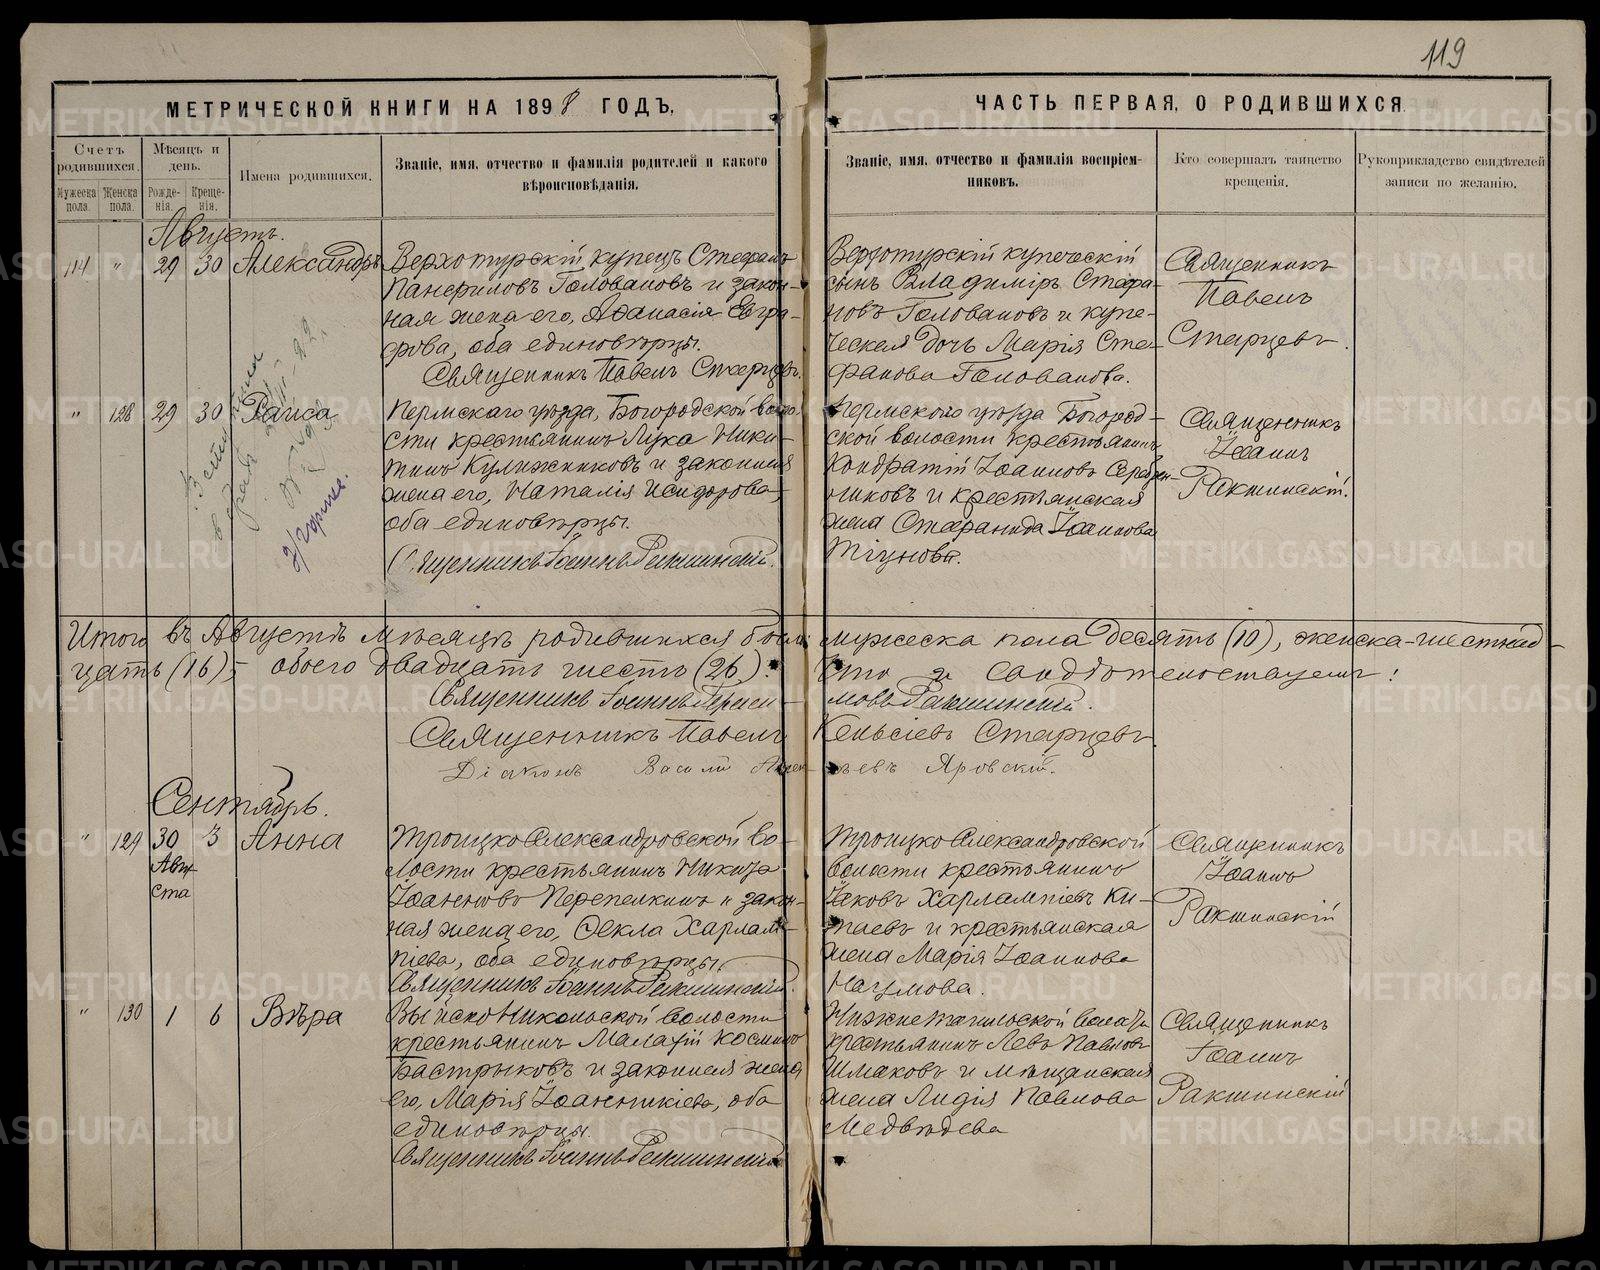 119
МЕТРИЧЕСКОЙ КНИГИ НА 1898 ГОДЪ,
ЧАСТЬ ПЕРВАЯ, О РОДИВШИХСЯ
Счетъ родившихся.
Мужеска пола.
Женска пола.
Мѣсяцъ и день.
Рожденія.
Крещенія.
Имена родившихся.
Званіе, имя, отчество и фамилія родителей и какого
вѣроисповѣданія.
Званіе, имя, отчество и фамилія воспріем-
никовъ.
Кто совершалъ таинство
крещенія.
Рукоприкладство свидѣтелей
записи по желанію.
Августъ.
114 " 29 30 Александръ
Верхотурскій купецъ Стефанъ
Панфиловъ Головановъ и закон-
ная жена его, Афанасія Евгра-
фова, оба единовѣрцы.
Священникъ Павелъ Старцевъ.
Верхотурскій купеческій
сынъ Владиміръ Стефа-
новъ Головановъ и купе-
ческая дочь Марія Сте-
фанова Голованова.
Священникъ
Павелъ
Старцевъ.
" 128 29 30 Раиса
Пермскаго уѣзда, Богородской воло-
сти крестьянинъ Лука Ники-
тинъ Кулижниковъ и законная
жена его, Наталія Исидорова,
оба единовѣрцы.
Священникъ Іоаннъ Ракшинскій.
Пермскаго уѣзда Богород-
ской волости крестьянинъ
Кондратій Іоанновъ Серебрен-
никовъ и крестьянская
жена Стефанида Іоаннова
Тіунова.
Священникъ
Іоаннъ
Ракшинскій.
Итого въ Августѣ мѣсяцѣ родившихся было мужеска пола десять (10), женска-шестнад-
цать (16), обоего двадцать шесть (26).
Что и свидѣтельствуемъ:
Священникъ Іоаннъ Ракшинскій.
Священникъ Павелъ Кельсіевъ Старцевъ
Діаконъ Василій Яровскій.
Сентябрь.
" 129 30 3 Анна
Авгу-
ста
Троицко Александровской во-
лости крестьянинъ Никита
Іоанновъ Перепелкинъ и закон-
ная жена его, Фекла Харлам-
піева, оба единовѣрцы.
Священникъ Іоаннъ Ракшинскій.
Троицко Александровской
волости крестьянинъ
Іаковъ Харлампіевъ Ки-
таевъ и крестьянская
жена Марія Іоаннова
Наумова.
Священникъ
Іоаннъ
Ракшинскій
" 130 1 6 Вѣра
Выйско Никольской волости
крестьянинъ Малафій Косминъ
Бастрыковъ и законная жена
его, Марія Іоанникіева, оба
единовѣрцы.
Священникъ Іоаннъ Ракшинскій
Нижнетагильской волости
крестьянинъ Левъ Павловъ
Шмаковъ и мѣщанская
жена Лидія Павлова
Медвѣдева
Священникъ
Іоаннъ
Ракшинскій
METRIKI.GASO-URAL.RU